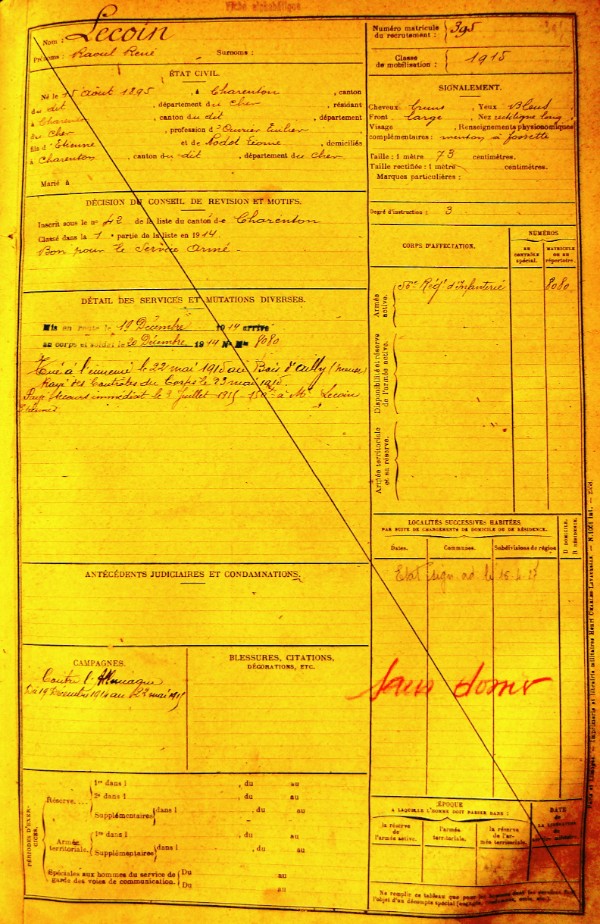 Fiche alphabétique
Nom : Lecoin
Prénoms : Raoul René Surnoms :
Numéro matricule du recrutement : 395
Classe de mobilisation : 1915
ÉTAT CIVIL.
Né le 15 août 1895, à Charenton, canton
du dit, département du Cher, résidant
à Charenton, canton du dit, département
du Cher, profession d'Ouvrier
fils d'Etienne et de domiciliés
à Charenton, canton du dit, département du Cher.
Marié à
SIGNALEMENT.
Cheveux bruns Yeux Bleus
Front large Nez rectiligne long
Visage Renseignements physionomiques
complémentaires : menton à fossette
Taille : 1 mètre 73 centimètres.
Taille rectifiée : 1 mètre centimètres.
Marques particulières :
Degré d'instruction : 3
DÉCISION DU CONSEIL DE REVISION ET MOTIFS.
Inscrit sous le no 42 de la liste du canton de Charenton
Classé dans la 1e partie de la liste en 1914.
Bon pour le Service armé.
CORPS D'AFFECTATION.
NUMÉROS
AU CONTRÔLE spécial.
MATRICULE OU AU répertoire.
Armée active.
Régt d'Infanterie 8080
Disponibilité et réserve de l'armée active.
Armée territoriale et sa réserve.
DÉTAIL DES SERVICES ET MUTATIONS DIVERSES.
Mis en route le 19 Décembre 1914 arrivé
au corps et soldat le 20 Décembre 1914 No Mle 8080
Tué à l'ennemi le 22 mai 1915 au Bois d'Ailly (Meuse)
Rayé des Contrôles du Corps le 23 mai 1915.
Payé Secours immédiat le 2 Juillet 1915 - 150f à Mr Lecoin
Etienne
LOCALITÉS SUCCESSIVES HABITÉES
PAR SUITE DE CHANGEMENTS DE DOMICILE OU DE RÉSIDENCE.
Dates. Communes. Subdivisions de région D. DOMICILE. R. RÉSIDENCE.
Etat sign. ad. le 15-6-27
sans
ANTÉCÉDENTS JUDICIAIRES ET CONDAMNATIONS.
CAMPAGNES.
Contre l'Allemagne
Du 19 Décembre 1914 au 22 mai 1915
BLESSURES, CITATIONS, DÉCORATIONS, ETC.
PÉRIODES D'EXERCICES.
Réserve....
1re dans l , du au
2e dans l , du au
Supplémentaires dans l , du au
Armée territoriale.
1re dans l , du au
Supplémentaires dans l , du au
Spéciales aux hommes du service de garde des voies de communication.
Du au
Du au
ÉPOQUE
A LAQUELLE L'HOMME DOIT PASSER DANS :
la réserve de l'armée active.
l'armée territoriale.
la réserve de l'armée territoriale.
DATE
DE LA LIBÉRATION